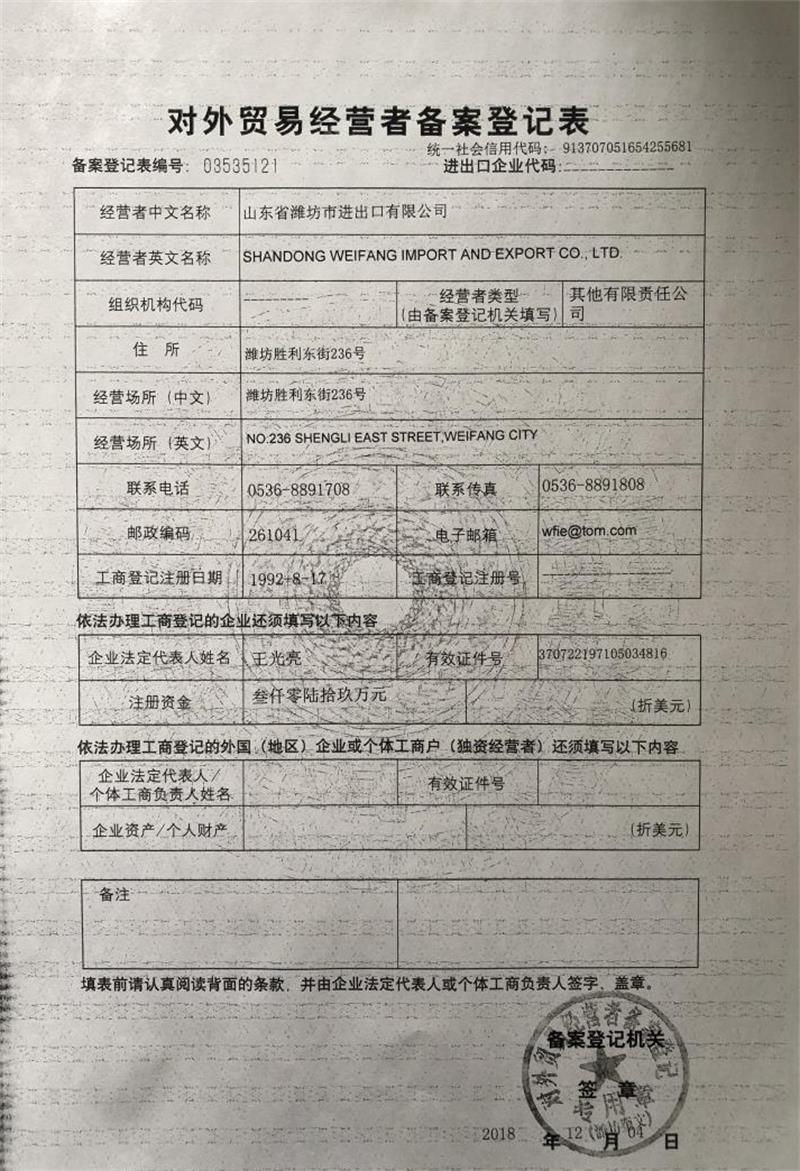 对外贸易经营者备案登记表
统一社会信用代码: 913707051654255681
备案登记表编号: 03535121 进出口企业代码: -------------
经营者中文名称 山东省潍坊市进出口有限公司
经营者英文名称 SHANDONG WEIFANG IMPORT AND EXPORT CO., LTD.
组织机构代码 --------- 经营者类型 其他有限责任公
(由备案登记机关填写) 司
住 所 潍坊胜利东街236号
经营场所 (中文) 潍坊胜利东街236号
经营场所 (英文) NO.236 SHENGLI EAST STREET,WEIFANG CITY
联系电话 0536-8891708 联系传真 0536-8891808
邮政编码 261041 电子邮箱 wfie@tom.com
工商登记注册日期 1992-8-17 工商登记注册号 ---------------
依法办理工商登记的企业还须填写以下内容
企业法定代表人姓名 王光亮 有效证件号 370722197105034816
注册资金 叁仟零陆拾玖万元 (折美元)
依法办理工商登记的外国 (地区) 企业或个体工商户 (独资经营者) 还须填写以下内容
企业法定代表人/
个体工商负责人姓名 有效证件号
企业资产/个人财产 (折美元)
备注
填表前请认真阅读背面的条款, 并由企业法定代表人或个体工商负责人签字、盖章。
备案登记机关
签 章
专用章
2018 年 12 月 04 日